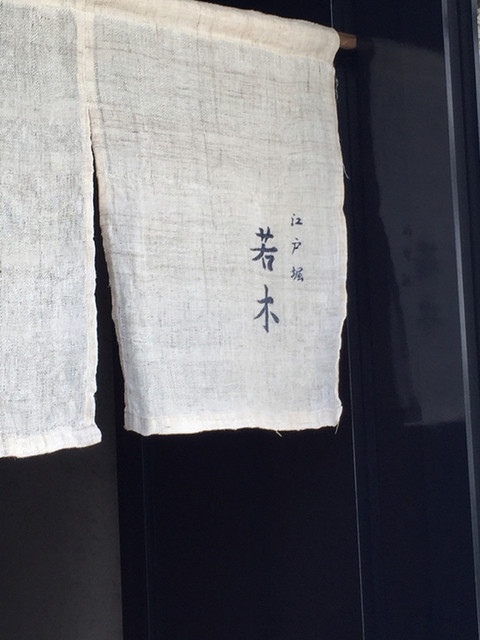 江戸堀
若木